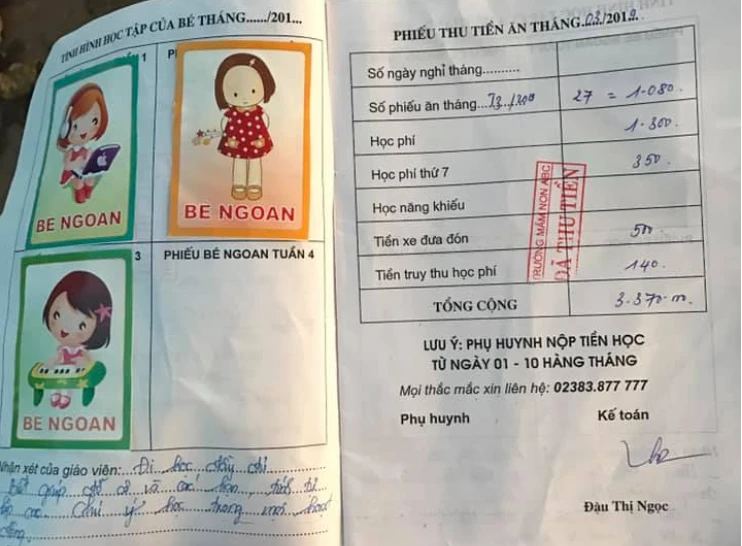 TÌNH HÌNH HỌC TẬP CỦA BÉ THÁNG....../201...
1
P
BÉ NGOAN
BÉ NGOAN
3
PHIẾU BÉ NGOAN TUẦN 4
BÉ NGOAN
Nhận xét của giáo viên: Đi học đầy đủ
giúp đỡ cô và các bạn
chú ý học trong mọi hoạt
động
PHIẾU THU TIỀN ĂN THÁNG.03/2019.
Số ngày nghỉ tháng..........
Số phiếu ăn tháng 27 = 1.080.
Học phí 1.300.
Học phí thứ 7 350.
Học năng khiếu
Tiền xe đưa đón 500.
Tiền truy thu học phí 140.
TỔNG CỘNG 3.370.m.
TRƯỜNG MẦM NON ABC
ĐÃ THU TIỀN
LƯU Ý: PHỤ HUYNH NỘP TIỀN HỌC
TỪ NGÀY 01 - 10 HÀNG THÁNG
Mọi thắc mắc xin liên hệ: 02383.877 777
Phụ huynh Kế toán
Đậu Thị Ngọc